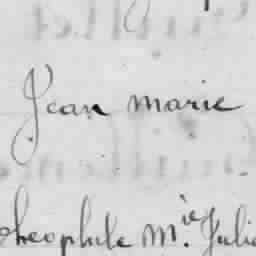 Jean marie
theophile M.ie Julie